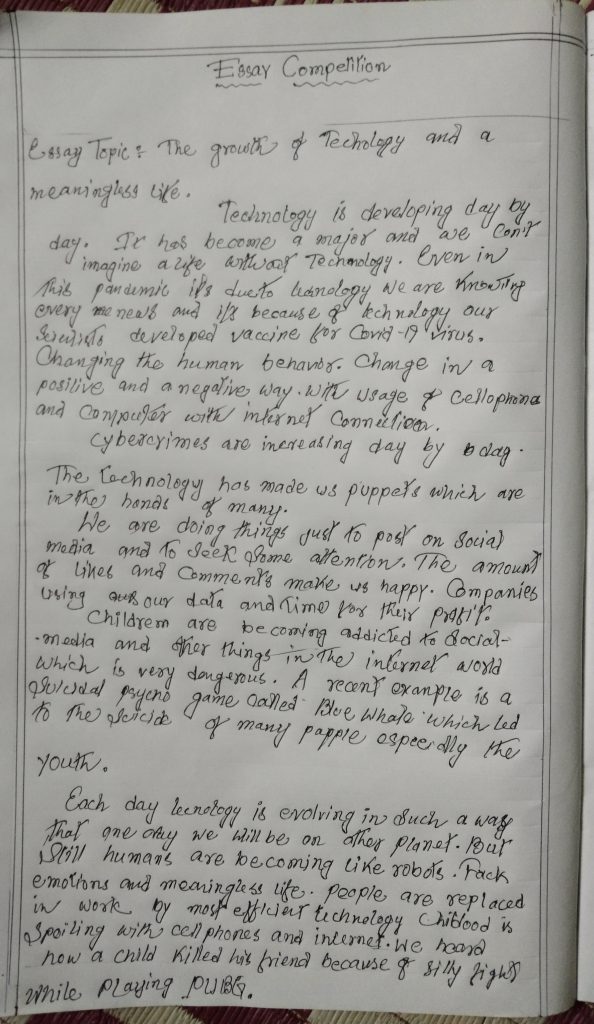 Essay Competition
Essay Topic : The growth of Techology and a
meaningless life.
Technology is developing day by
day. It has become a major and we can't
imagine a life without Technology. Even in
this pandemic it's due to tecnology we are knowing
every the news and it's because of technology our
Scientists developed vaccine for Covid-19 virus.
Changing the human behavior. Change in a
positive and a negative way. With usage of Cellophone
and Computer with internet Connection.
Cybercrimes are increasing day by day.
The technology has made us puppets which are
in the hands of many.
We are doing things just to post on Social
media and to seek some attention. The amount
of likes and Comments make us happy. Companies
using our data and time for their profit.
Children are becoming addicted to Social-
-media and other things in the internet world
which is very dangerous. A recent example is a
Suicidal psycho game called Blue Whale which led
to the suicide of many papple especially the
youth.
Each day tecnology is evolving in such a way
that one day we will be on other planet. But
still humans are becoming like robots. Fack
emotions and meaningless life. people are replaced
in work by most efficient technology Chiblood is
spoiling with cell phones and internet. We heard
how a child killed his friend because of silly fight
while playing PUBG.